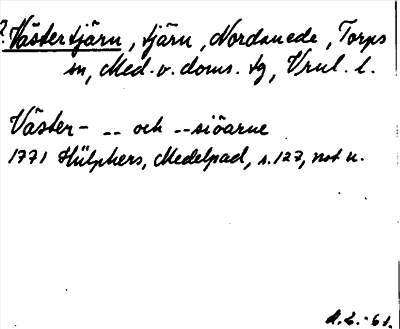 ? Västertjärn, tjärn, Nordanede, Torps
sn, Med. v. doms. tg, Vrnl. l.
Väster- -- och --siöarne
1771 Hülphers, Medelpad, s. 127, not u.
A.L. -61.